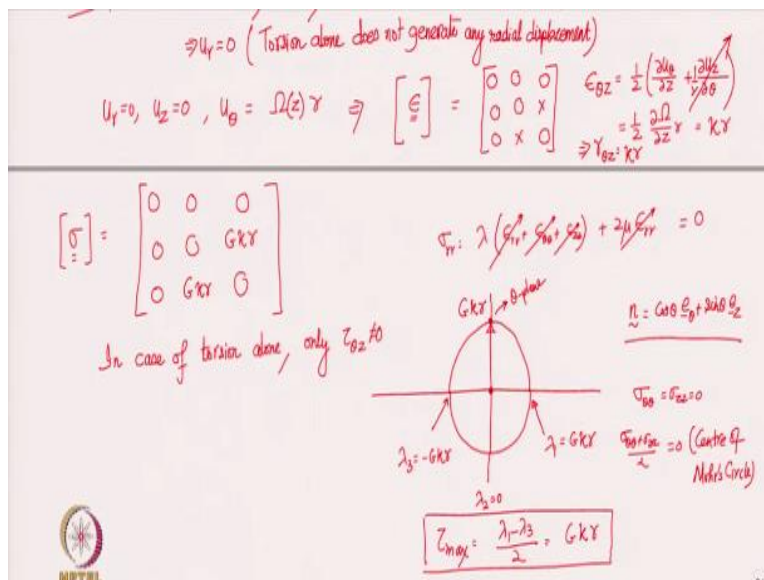 ⇒ u_r = 0 (Torsion alone does not generate any radial displacement)
u_r = 0, u_z = 0, u_θ = Ω(z) r ⇒ [ε] = [0 0 0; 0 0 x; 0 x 0]
ε_θz = 1/2 (∂u_θ/∂z + 1/r ∂u_z/∂θ)
= 1/2 ∂Ω/∂z r = κr
⇒ γ_θz = κr
[σ] = [0 0 0; 0 0 Gκr; 0 Gκr 0]
σ_rr = λ(ε_rr + ε_θθ + ε_zz) + 2μ ε_rr = 0
In case of torsion alone, only τ_θz ≠ 0
Gκr
θ-plane
n = cosθ e_θ + sinθ e_z
σ_θθ = σ_zz = 0
(σ_θθ + σ_zz)/2 = 0 (Centre of
Mohr's Circle)
λ_3 = -Gκr
λ_1 = Gκr
λ_2 = 0
τ_max = (λ_1 - λ_3)/2 = Gκr
NPTEL